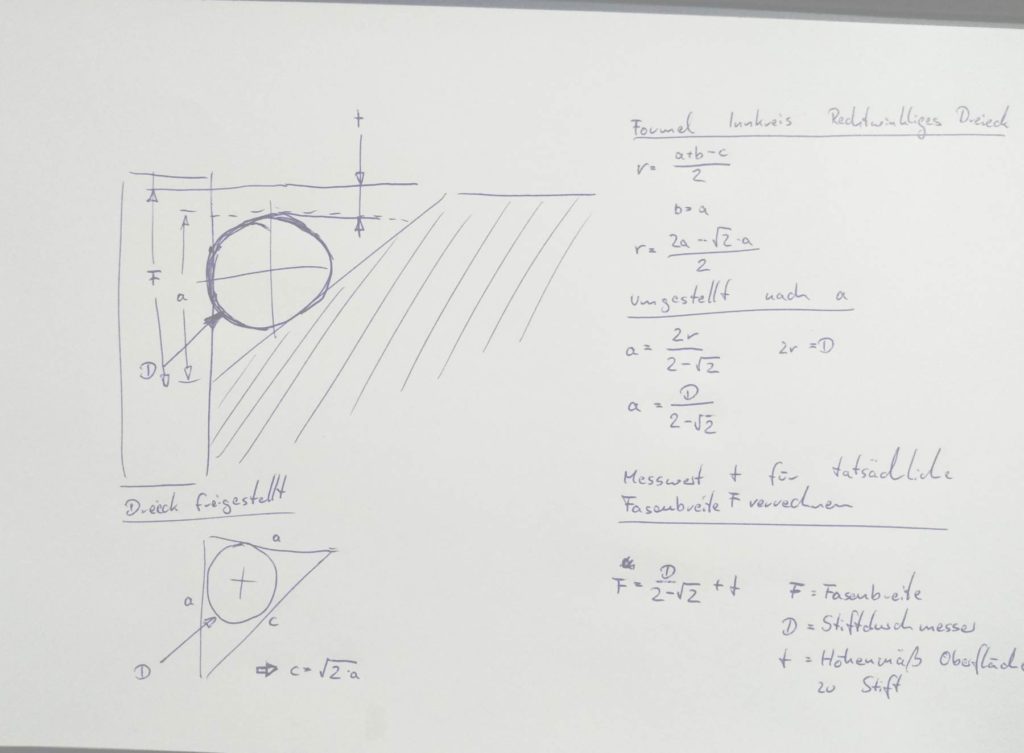 t
F
a
D
Dreieck freigestellt
a
a
c
D
⇒ c = √2·a
Formel Innkreis Rechtwinkliges Dreieck
r = (a+b-c)/2
b = a
r = (2a - √2·a)/2
Umgestellt nach a
a = 2r/(2-√2) 2r = D
a = D/(2-√2)
Messwert t für tatsächliche
Fasenbreite F verrechnen
F = D/(2-√2) + t
F = Fasenbreite
D = Stiftdurchmesser
t = Höhenmaß Oberfläche
zu Stift